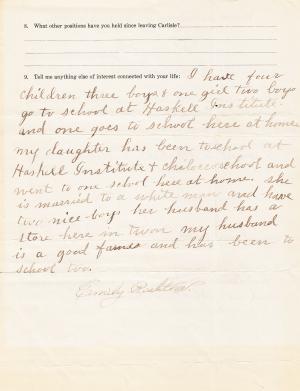 8. What other positions have you held since leaving Carlisle?
9. Tell me anything else of interest connected with your life: I have four
children three boys & one girl two boys
go to school at Haskell Institute.
and one goes to school here at home
my daughter has been to school at
Haskell Institute & chilocco school and
went to one school here at home. she
is married to a white man and have
two nice boys her husband has a
store here in twon my husband
is a good and has been to
school too.